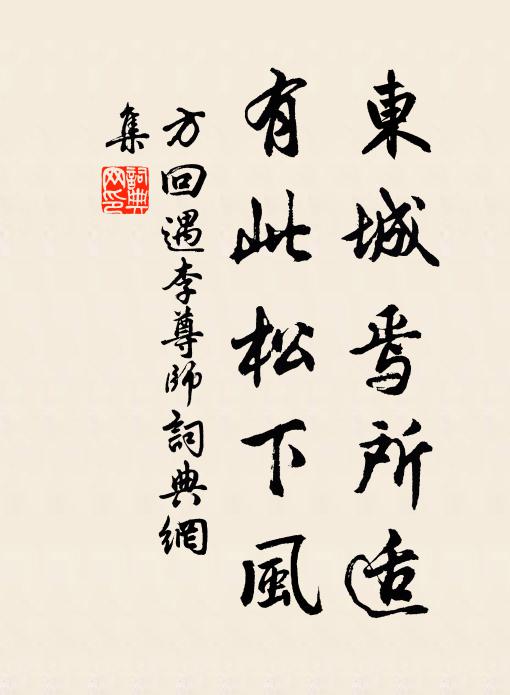 東城焉所适
有此松下風
方回遇李尊師詞典網
集
詞典網印